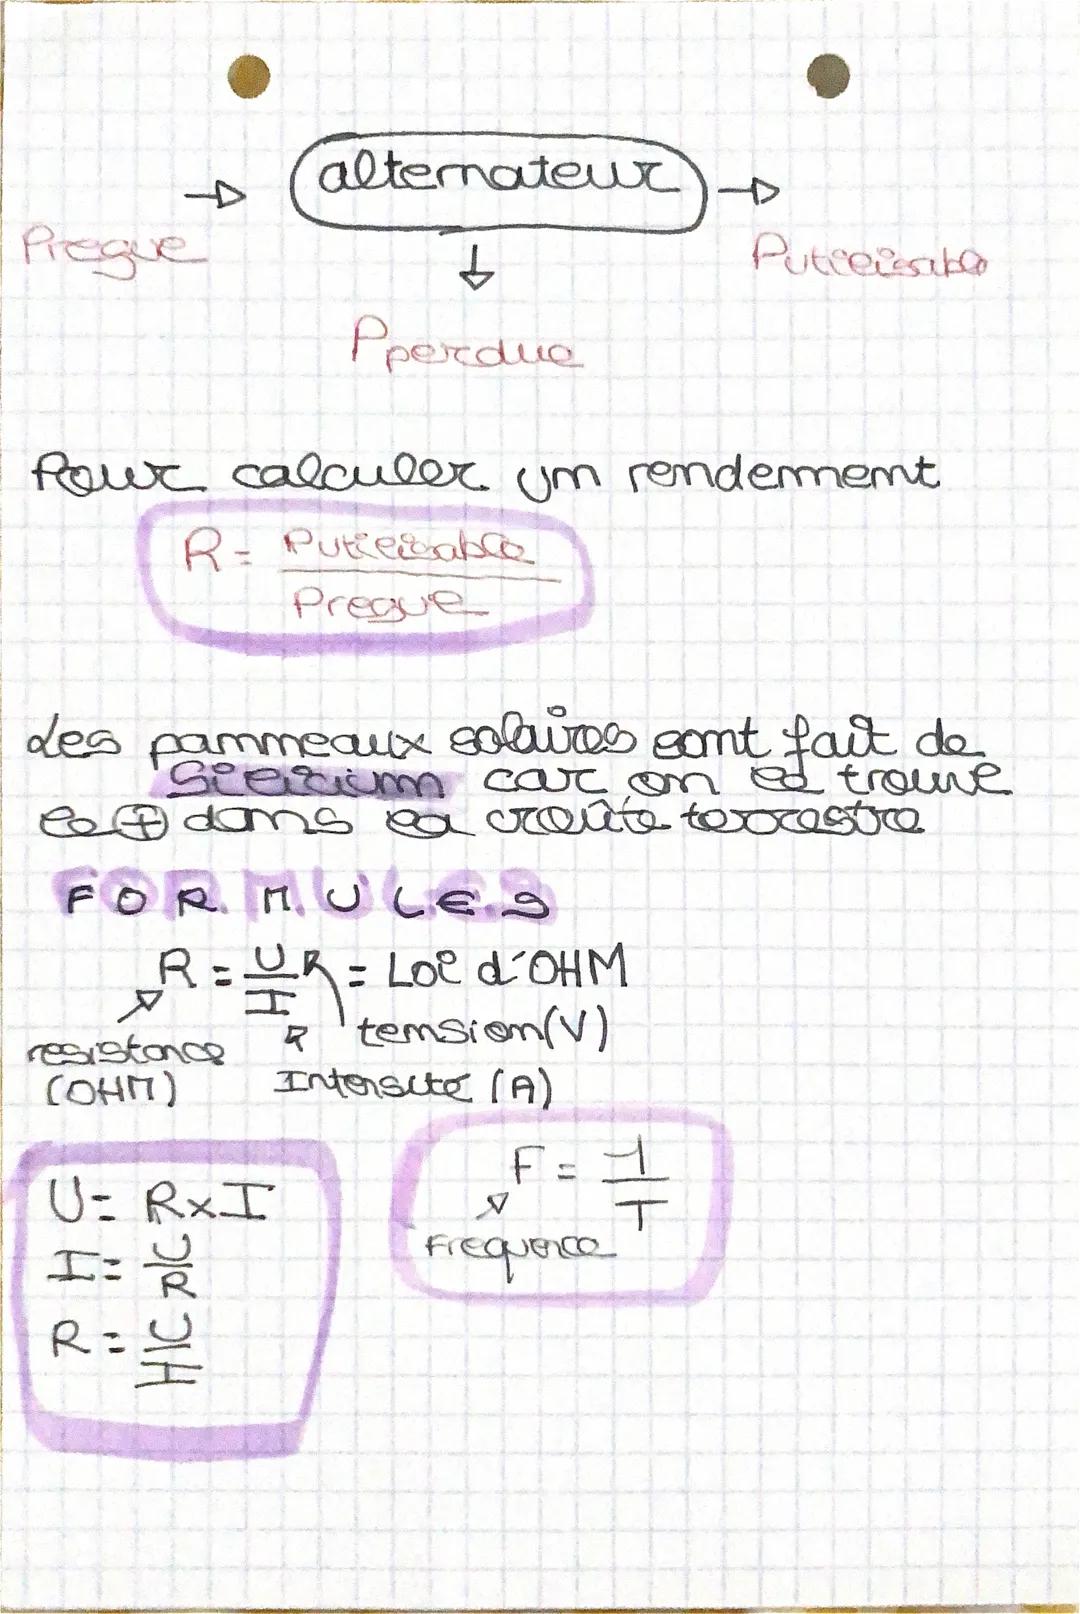 alternateur
Preçue
Putilisable
Pperdue
Pour calculer un rendement
R = Putilisable
Preçue
Les panneaux solaires sont fait de
Silicium car on le trouve
le + dans la croûte terrestre
FORMULES
R = U = Loi d'OHM
I
tension (V)
resistance
(OHM)
Intensité (A)
F = 1
T
Frequence
U = R x I
I = U
R
R = U
I